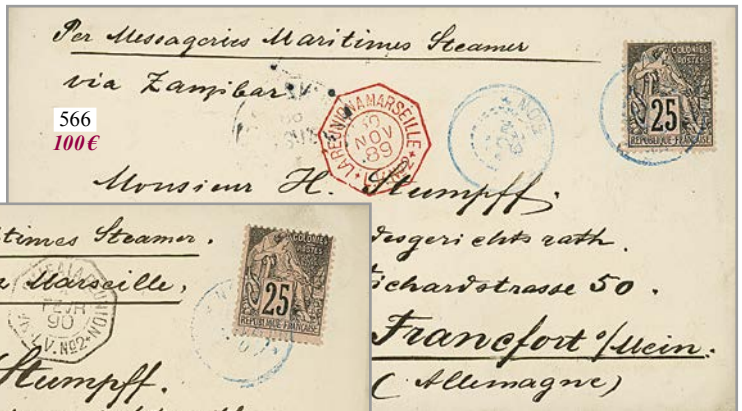 Per Messageries Maritimes Steamer
via Zanzibar
566
100€
LA REUNION A MARSEILLE
NOV
89
L.V. Nº2
COLONIES
POSTES
25
REPUBLIQUE FRANÇAISE
Monsieur H. Stumpff.
desgerichtsrath.
ichardstrasse 50.
Francfort s/Mein.
(Allemagne)
times Steamer.
Marseille,
COLONIES
POSTES
25
REPUBLIQUE FRANÇAISE
REUNION
FEVR
90
L.V. Nº2
Stumpff.